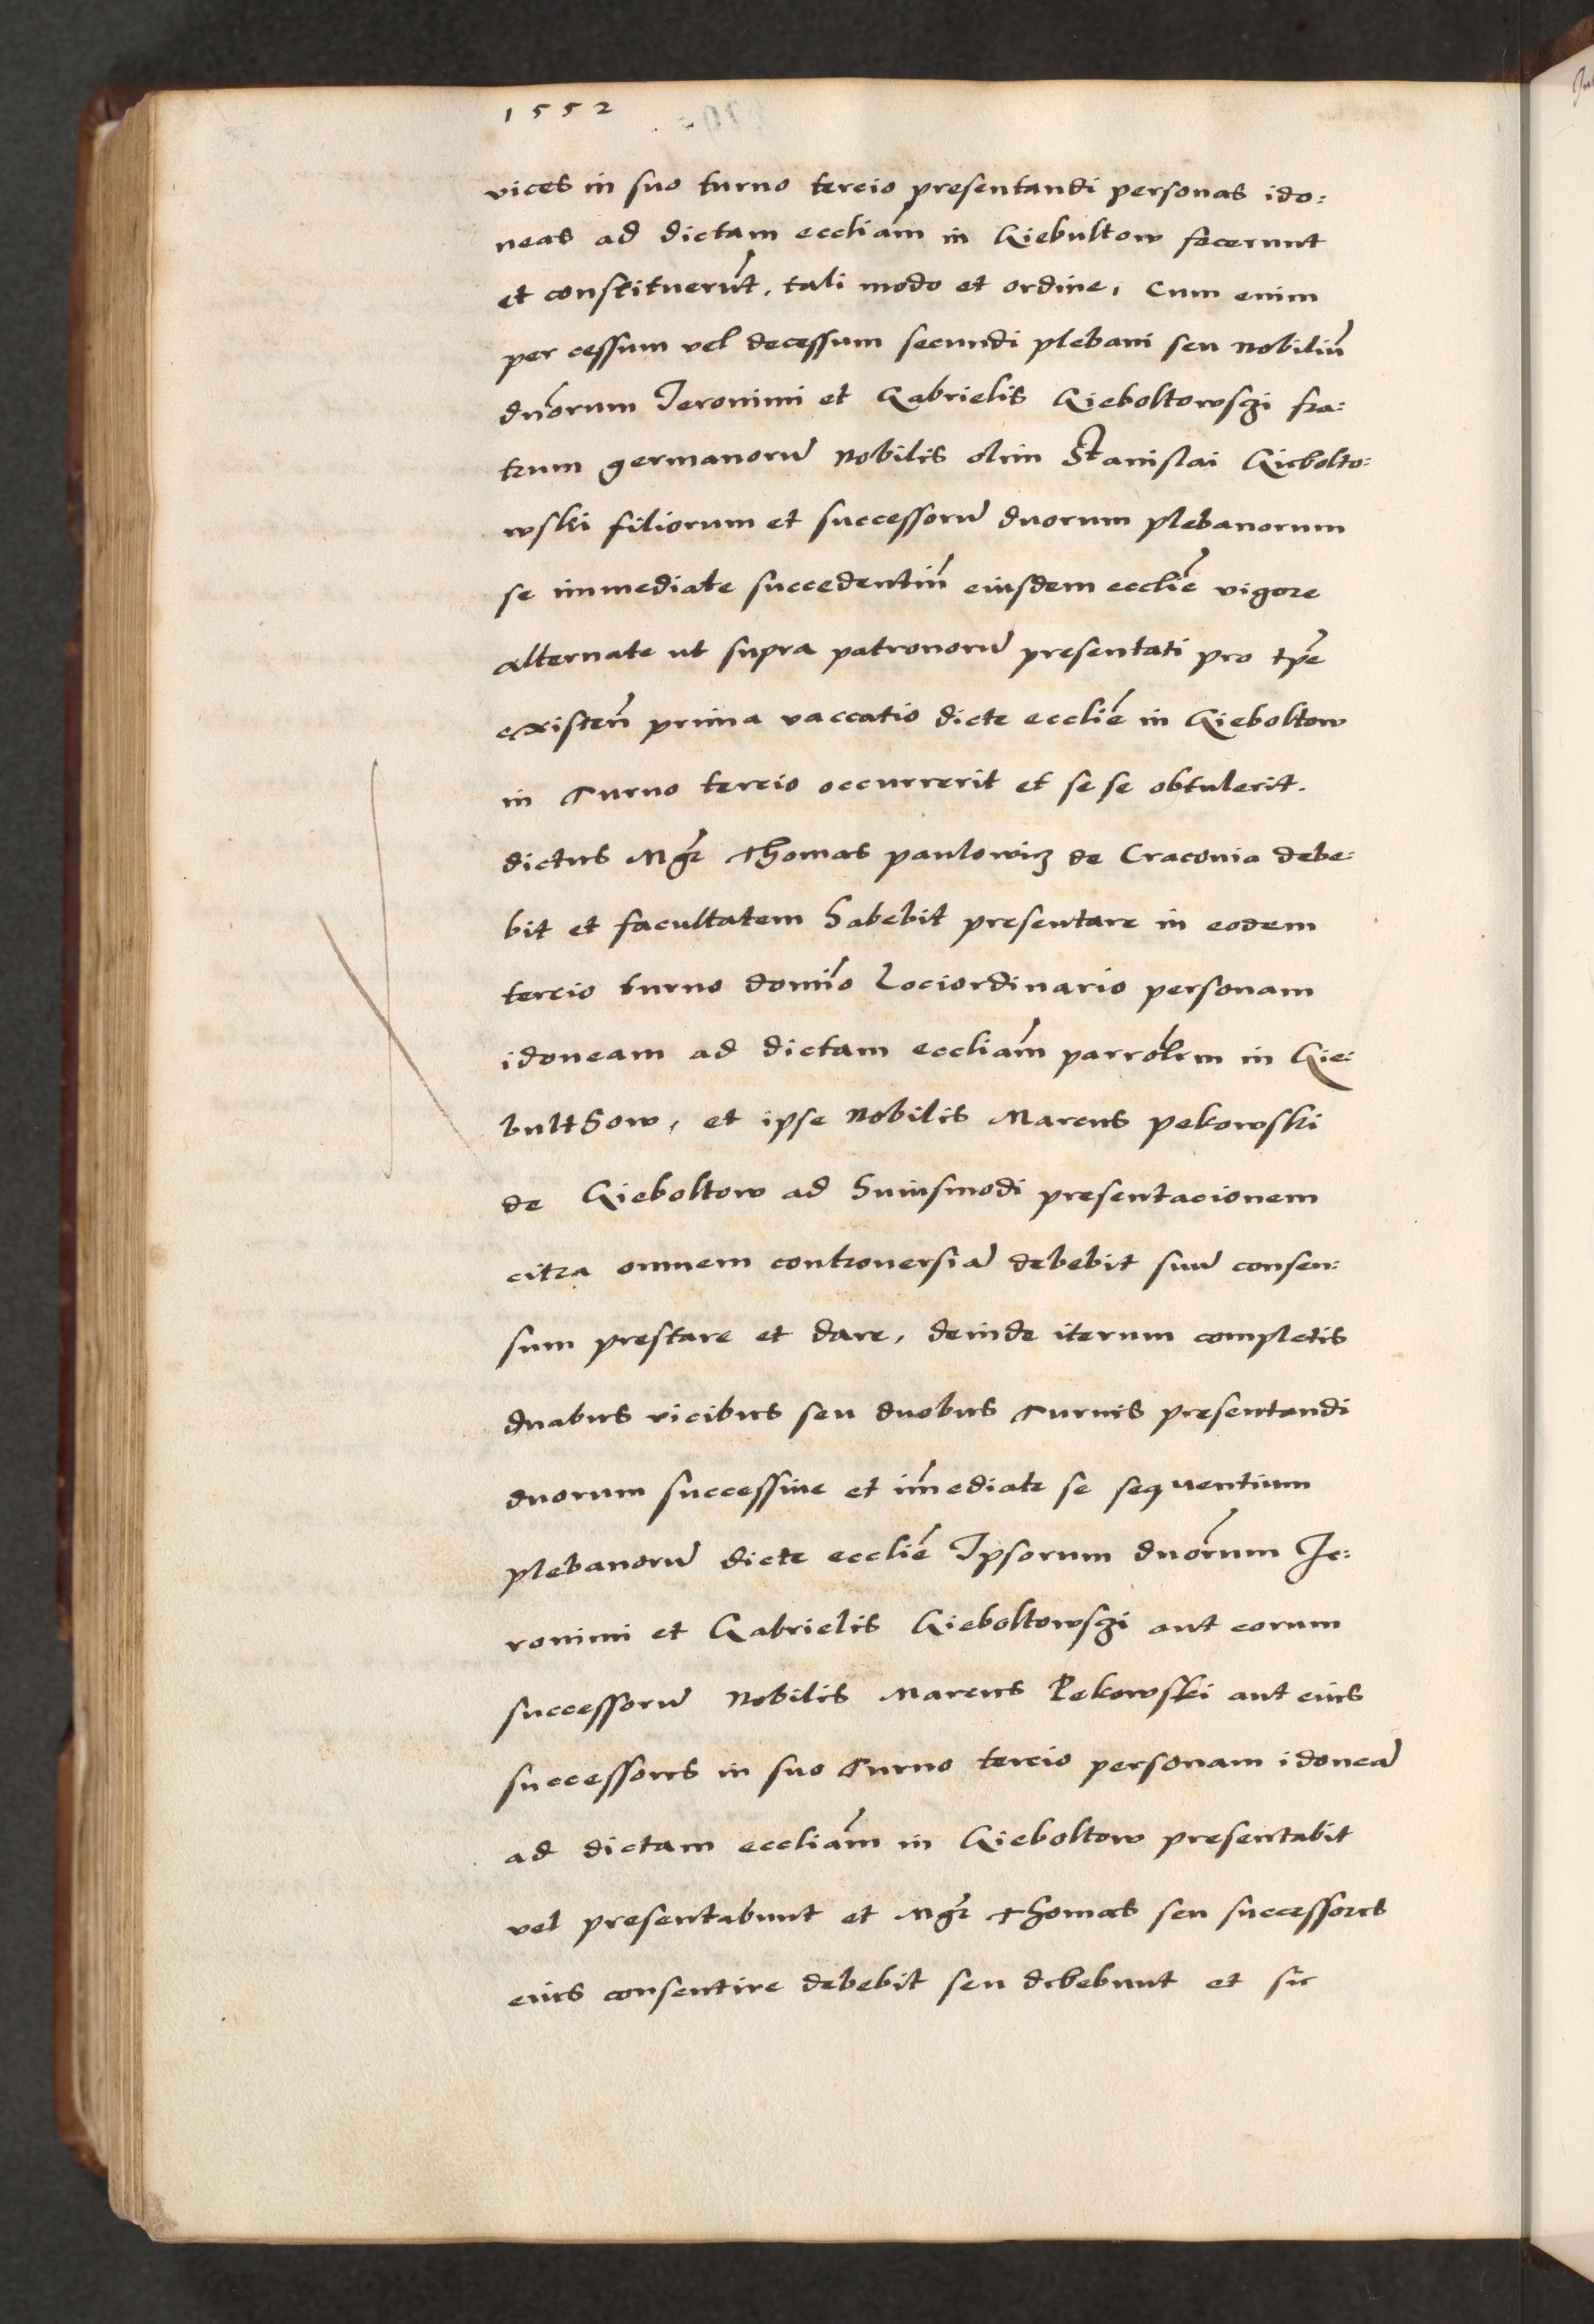 1552
vices in suo turno tercio presentandi personas ido:
neas ad dictam eccliam̄ in Giebultow fecerunt
et constituerūt, tali modo et ordine, Cum enim
per cessum vel decessum secundi plebani seu Nobiliū
dn̄orum Ieronimi et Gabrielis Gieboltowsgi fra:
trum germanorū Nobilis olim Stanislai Giebolto:
wski filiorum et successorū duorum plebanorum
se immediate succedentiū eiusdem ecclīe vigore
alternate ut supra patronorū presentati pro tp̄e
existen̄ prima vaccatio dicte ecclīe in Gieboltow
in Turno tercio occurrerit et se se obtulerit.
dictus Mgr̄ Thomas paulowicz de Cracovia debe:
bit et facultatem habebit presentare in eodem
tercio turno domīo Lociordinario personam
idoneam ad dictam eccliam̄ parrolem̄ in Gie:
bulthow, et ipse Nobilis Marcus pekowski
de Gieboltow ad huiusmodi presentacionem
citra omnem controversiā debebit suū consen:
sum prestare et dare, deinde iterum completis
duabus vicibus seu duobus Turnis presentandi
duorum successive et im̄ediate se sequentium
plebanorū dicte ecclīe Ipsorum dn̄orum Ie:
ronimi et Gabrielis Gieboltowsgi aut eorum
successorū Nobilis Marcus Pekowski aut eius
successores in suo Turno tercio personam idoneā
ad dictam eccliam̄ in Gieboltow presentabit
vel presentabunt et Mgr̄ Thomas seu successores
eius consentire debebit seu debebunt et sic